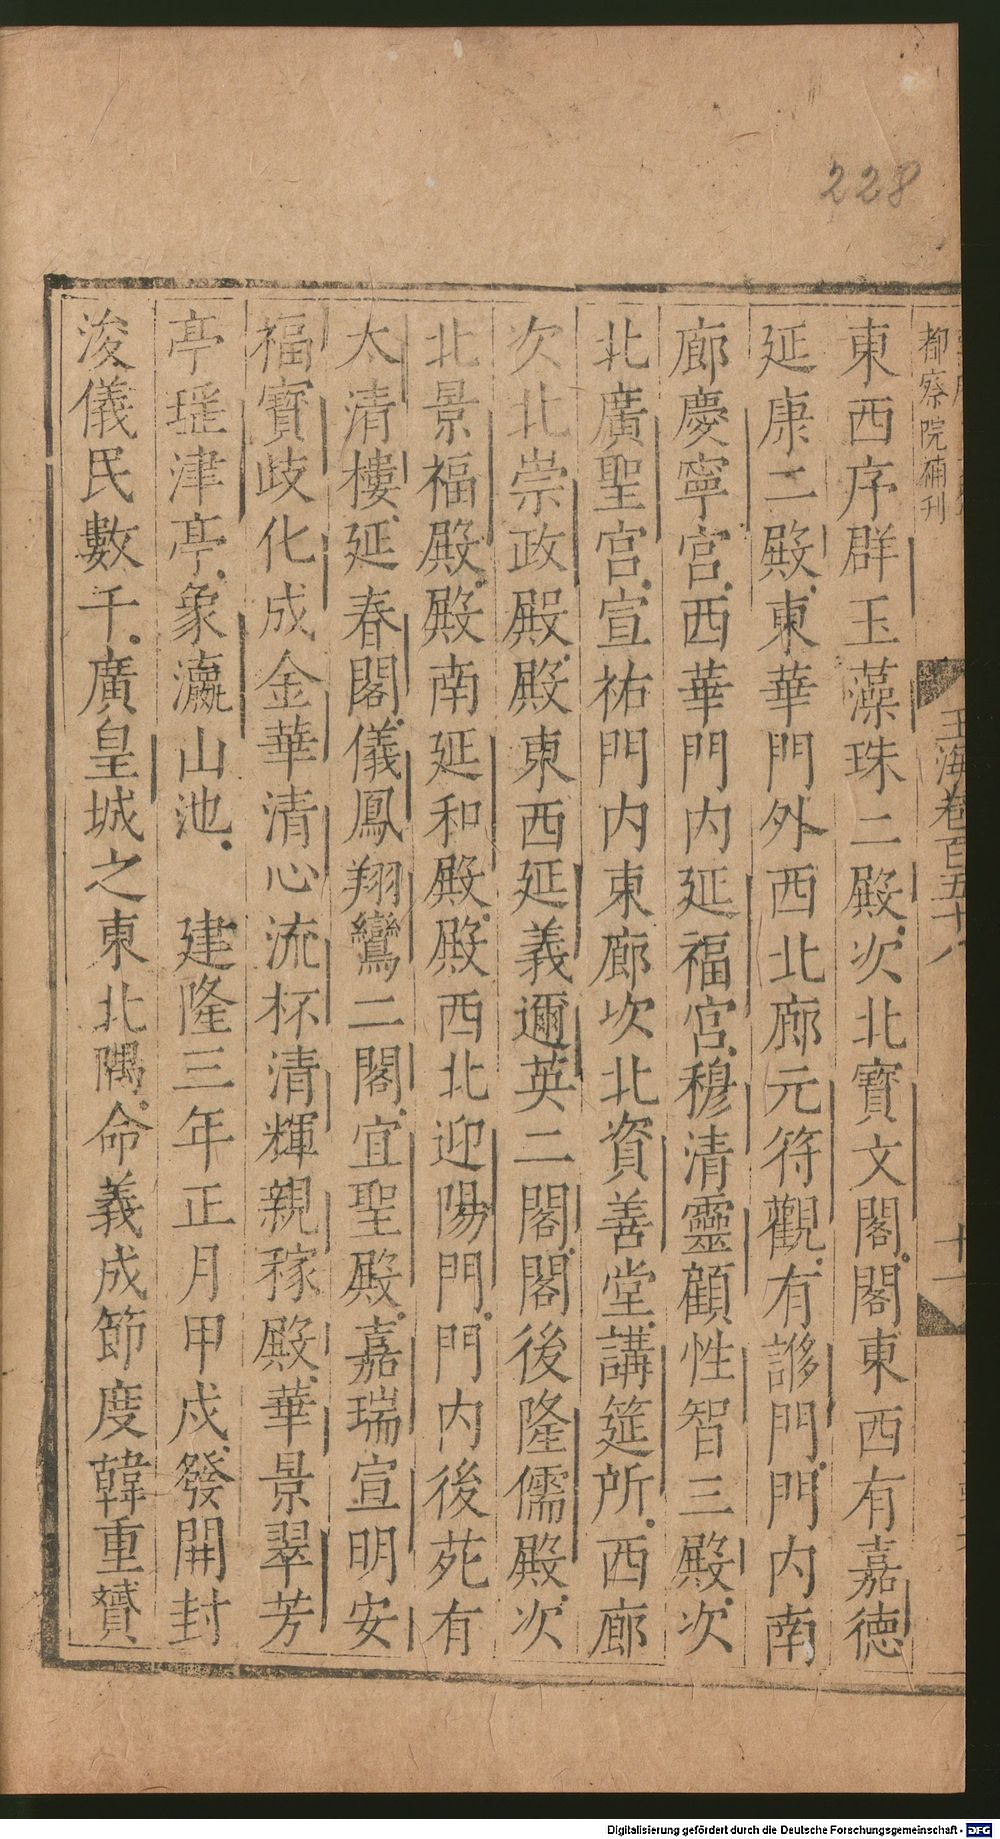 228
都察院補刊
玉海卷百五十八
十一
東西序群玉藻珠二殿次北寶文閣閣東西有嘉德
延康二殿東華門外西北廊元符觀有謻門門内南
廊慶寧宮西華門内延福宮穆清靈顧性智三殿次
北廣聖宮宣祐門内東廊次北資善堂講筵所西廊
次北崇政殿殿東西延義邇英二閣閣後隆儒殿次
北景福殿殿南延和殿殿西北迎陽門門内後苑有
太清樓延春閣儀鳳翔鸞二閣宜聖殿嘉瑞宣明安
福寶歧化成金華清心流杯清輝親稼殿華景翠芳
亭瑶津亭象瀛山池 建隆三年正月甲戌發開封
浚儀民數千廣皇城之東北隅命義成節度韓重贇
Digitalisierung gefördert durch die Deutsche Forschungsgemeinschaft - DFG